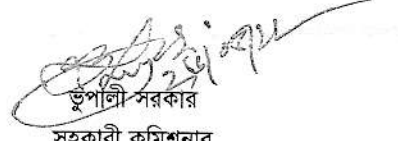 ভূপালী সরকার
সহকারী কমিশনার